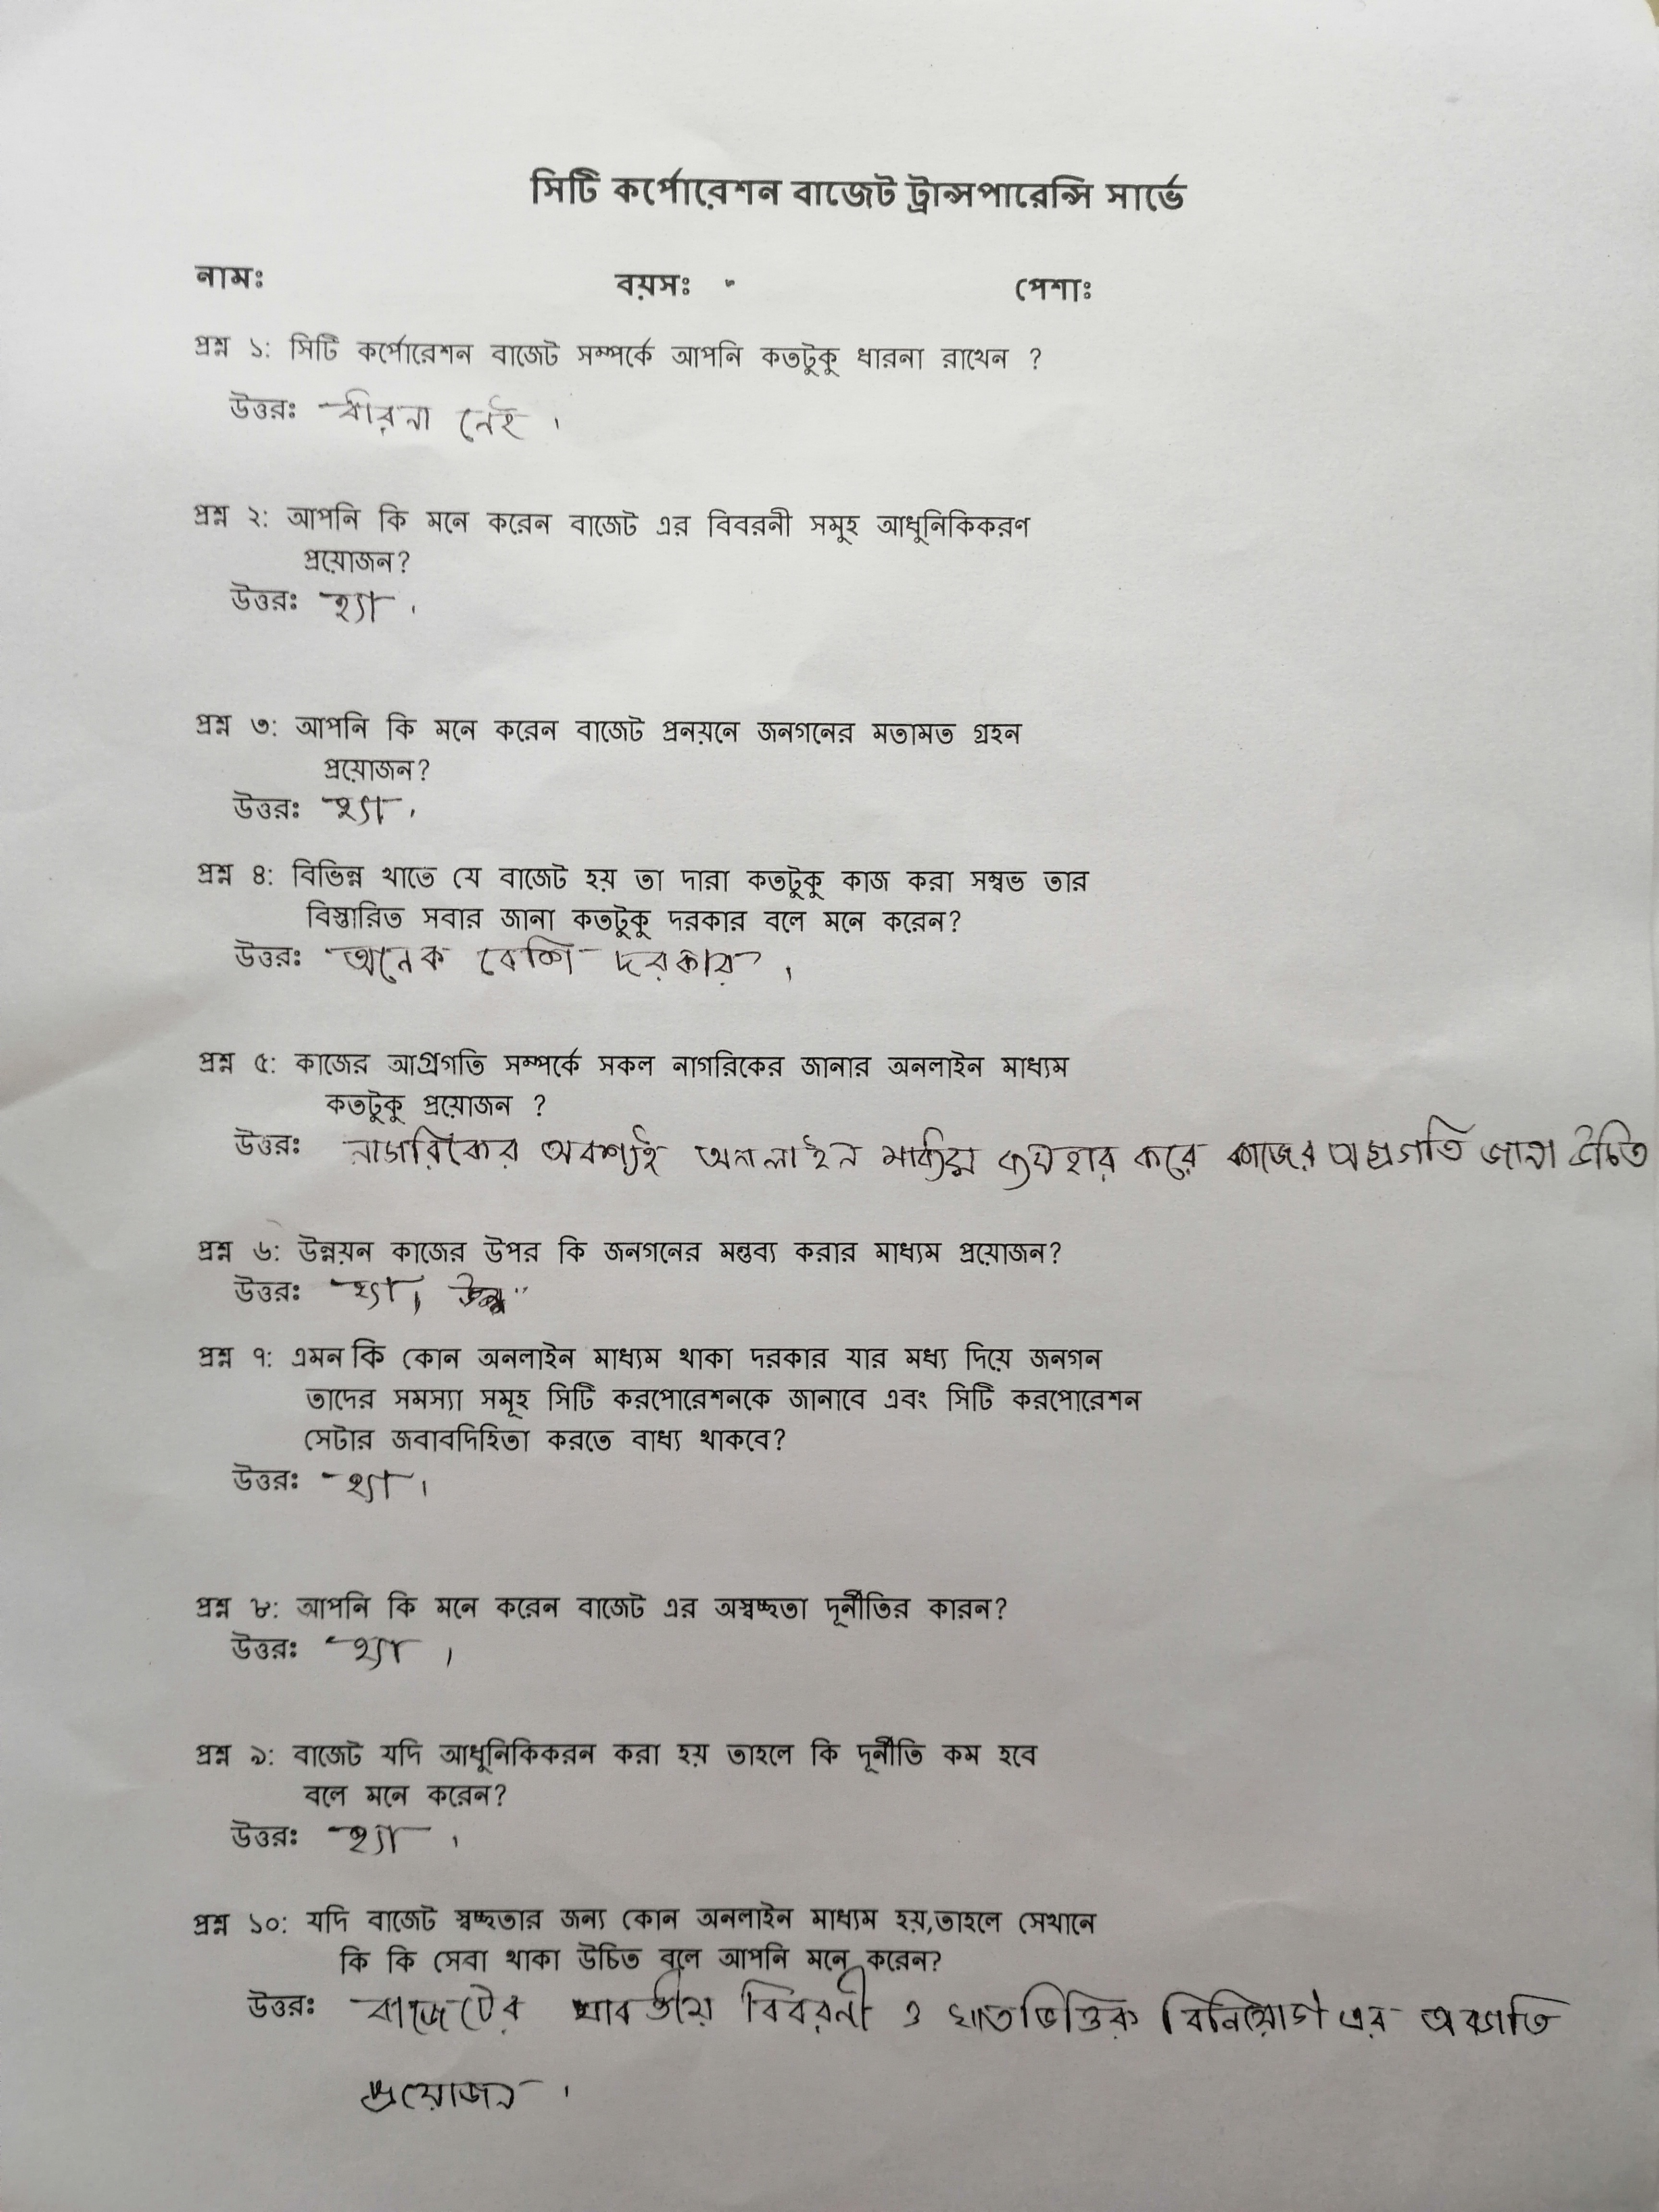 সিটি কর্পোরেশন বাজেট ট্রান্সপারেন্সি সার্ভে
নামঃ বয়সঃ পেশাঃ
প্রশ্ন ১: সিটি কর্পোরেশন বাজেট সম্পর্কে আপনি কতটুকু ধারনা রাখেন ?
উত্তরঃ ধারনা নেই ।
প্রশ্ন ২: আপনি কি মনে করেন বাজেট এর বিবরনী সমুহ আধুনিকিকরণ
প্রয়োজন?
উত্তরঃ হ্যা ।
প্রশ্ন ৩: আপনি কি মনে করেন বাজেট প্রনয়নে জনগনের মতামত গ্রহন
প্রয়োজন?
উত্তরঃ হ্যা ।
প্রশ্ন ৪: বিভিন্ন খাতে যে বাজেট হয় তা দারা কতটুকু কাজ করা সম্বভ তার
বিস্তারিত সবার জানা কতটুকু দরকার বলে মনে করেন?
উত্তরঃ অনেক বেশি দরকার ।
প্রশ্ন ৫: কাজের আগ্রগতি সম্পর্কে সকল নাগরিকের জানার অনলাইন মাধ্যম
কতটুকু প্রয়োজন ?
উত্তরঃ নাগরিকের অবশ্যই অনলাইন মাধ্যম ব্যবহার করে কাজের অগ্রগতি জানা উচিত
প্রশ্ন ৬: উন্নয়ন কাজের উপর কি জনগনের মন্তব্য করার মাধ্যম প্রয়োজন?
উত্তরঃ হ্যা ,
প্রশ্ন ৭: এমন কি কোন অনলাইন মাধ্যম থাকা দরকার যার মধ্য দিয়ে জনগন
তাদের সমস্যা সমূহ সিটি করপোরেশনকে জানাবে এবং সিটি করপোরেশন
সেটার জবাবদিহিতা করতে বাধ্য থাকবে?
উত্তরঃ হ্যা ।
প্রশ্ন ৮: আপনি কি মনে করেন বাজেট এর অস্বচ্ছতা দূর্নীতির কারন?
উত্তরঃ হ্যা ।
প্রশ্ন ৯: বাজেট যদি আধুনিকিকরন করা হয় তাহলে কি দূর্নীতি কম হবে
বলে মনে করেন?
উত্তরঃ হ্যা ।
প্রশ্ন ১০: যদি বাজেট স্বচ্ছতার জন্য কোন অনলাইন মাধ্যম হয়,তাহলে সেখানে
কি কি সেবা থাকা উচিত বলে আপনি মনে করেন?
উত্তরঃ বাজেটের যাবতীয় বিবরনী ও খাতভিত্তিক বিনিয়োগ এর অবগতি
প্রয়োজন ।